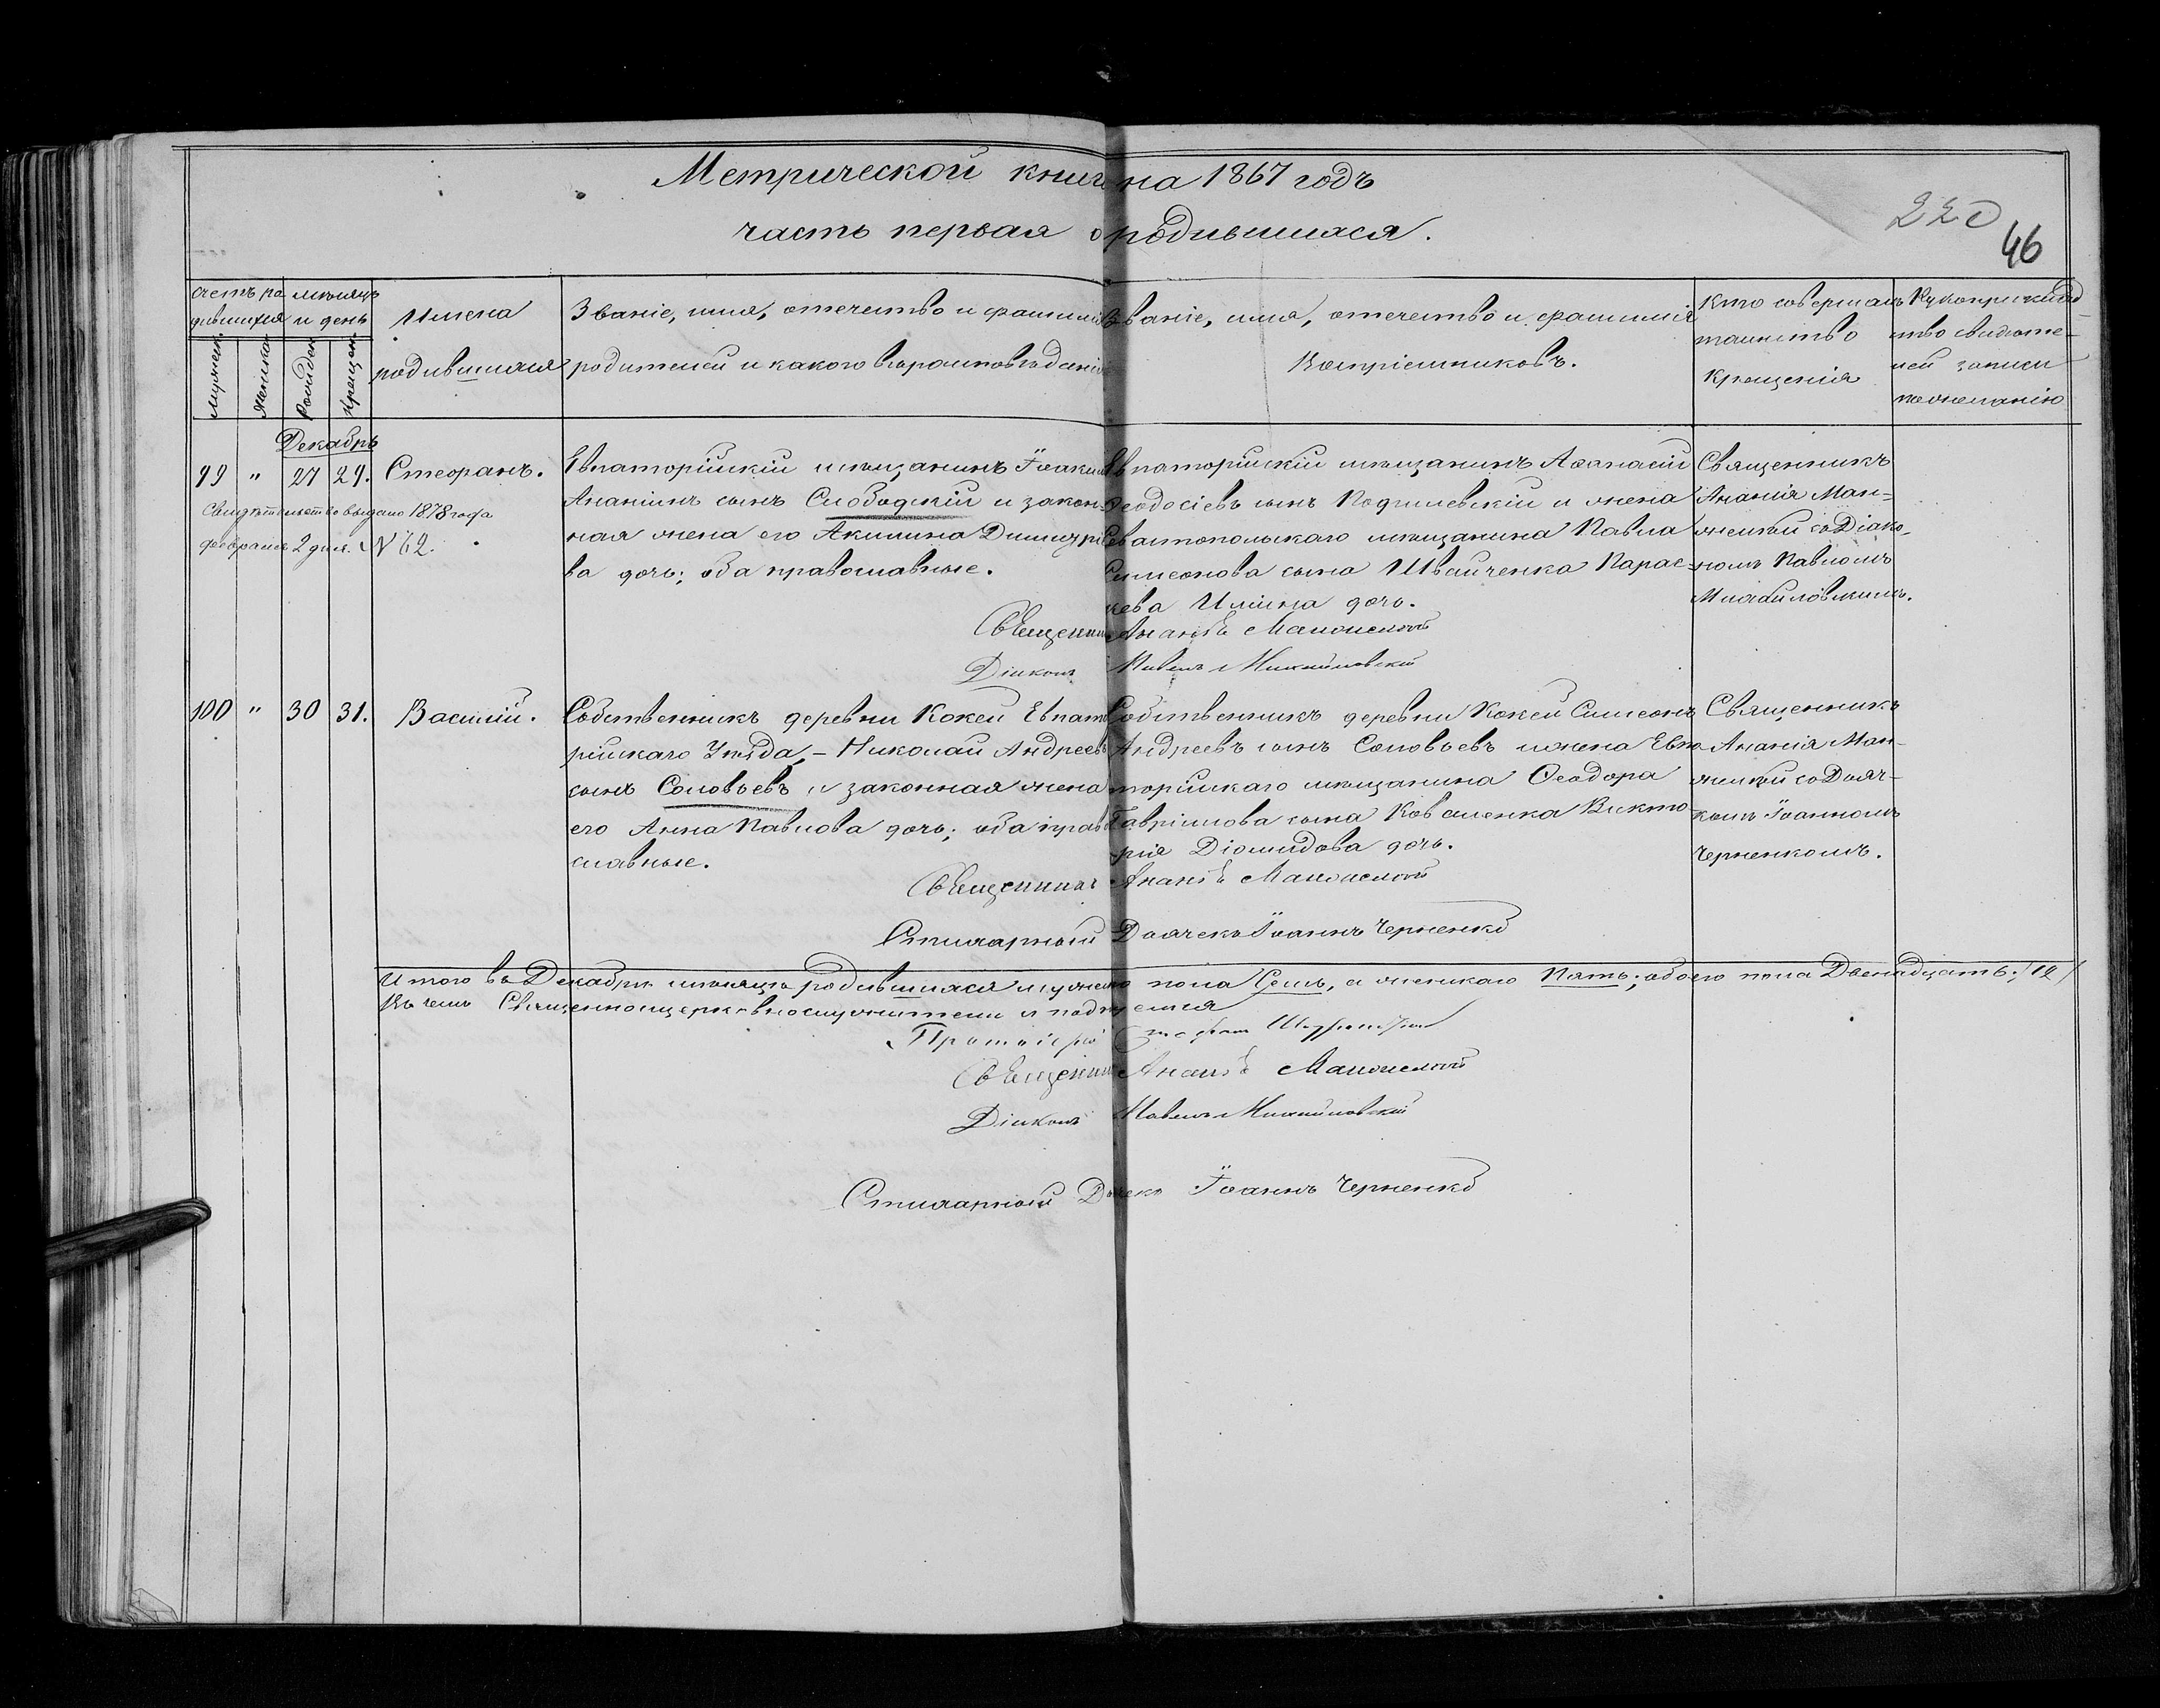 Метрической книги на 1867 годъ
часть первая о родившихся.
220
46
Счетъ ро
дившихся
Мужеск.
Женска.
мѣсяцъ
и день
Рожден.
Крещен.
Имена
родившихся
Званіе, имя, отечество и фамилія
родителей и какого вѣроисповѣданія
Званіе, имя, отечество и фамилія
Воспріемниковъ.
Кто совершалъ
таинство
крещенія
Рукоприклад
ство свидѣте-
лей записи
по желанію
Декабрь
99 " 27 29. Стефанъ.
Свидѣтельство выдано 1878 года
февраля 2 дня. N 62.
Евпаторійскій мѣщанинъ Іоакимъ
Ананіинъ сынъ Слободскій и закон-
ная жена его Акилина Димитріе
ва дочь; оба православные.
Евпаторійскій мѣщанинъ Аѳанасій
Ѳеодосіевъ сынъ и жена
Севастопольскаго мѣщанина Павла
Симеонова сына Швайченка Парас-
кева Иліина дочь.
Священникъ
Ананія Ман-
желей со Діако-
номъ Павломъ
Михайловскимъ.
Священникъ Ананія
Діаконъ Павелъ Михайловскій
100 " 30 31. Василій.
Собственникъ деревни Кокей Евпато
рійскаго Уѣзда, - Николай Андреевъ
сынъ Соловьевъ и законная жена
его Анна Павлова дочь; оба право
славные.
Собственникъ деревни Кокей Симеонъ
Андреевъ сынъ Соловьевъ и жена Евпа
торійскаго мѣщанина Ѳеодора
Гавріилова сына Коваленка Викто-
рія Діомидова дочь.
Священникъ
Ананія Ман-
желей со Дьяч-
комъ Іоанномъ
Черненкомъ.
Священникъ Ананія
Стихарный Дьячекъ Іоаннъ Черненко
Итого въ Декабрѣ мѣсяцѣ родившихся мужеска пола Семь, а женскаго Пять; обоего пола Двенадцать. /12/
Въ чемъ Священноцерковнослужители и подпуемся
Протоіерей
Священникъ Ананія
Діаконъ Павелъ Михайловскій
Стихарный Дьячекъ Іоаннъ Черненко